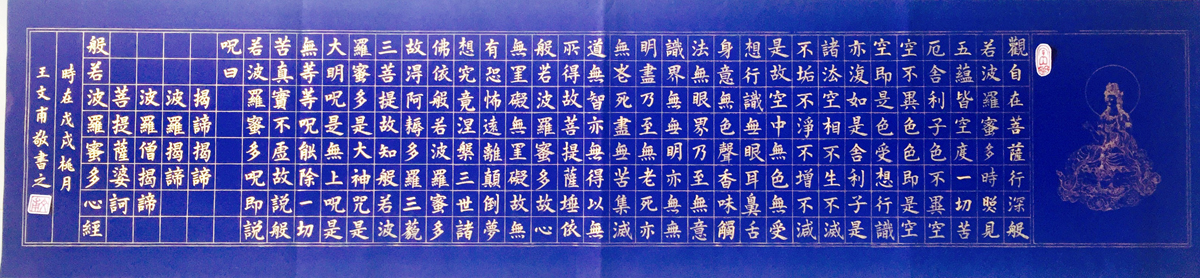 觀自在菩薩行深般
若波羅蜜多時照見
五蘊皆空度一切苦
厄舍利子色不異空
空不異色色即是空
空即是色受想行識
亦復如是舍利子是
諸法空相不生不滅
不垢不淨不增不減
是故空中無色無受
想行識無眼耳鼻舌
身意無色聲香味觸
法無眼界乃至無意
識界無無明亦無無
明盡乃至無老死亦
無老死盡無苦集滅
道無智亦無得以無
所得故菩提薩埵依
般若波羅蜜多故心
無罣礙無罣礙故無
有恐怖遠離顛倒夢
想究竟涅槃三世諸
佛依般若波羅蜜多
故得阿耨多羅三藐
三菩提故知般若波
羅蜜多是大神呪是
大明呪是無上呪是
無等等呪能除一切
苦真實不虛故説般
若波羅蜜多呪即説
呪曰
揭諦揭諦
波羅揭諦
波羅僧揭諦
菩提薩婆訶
般若波羅蜜多心經
時在戊戌桃月
王文甫敬書之